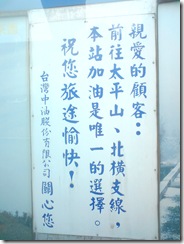 親愛的顧客：
前往太平山、北橫支線，
本站加油是唯一的選擇。
祝您旅途愉快！
台灣中油股份有限公司 關心您